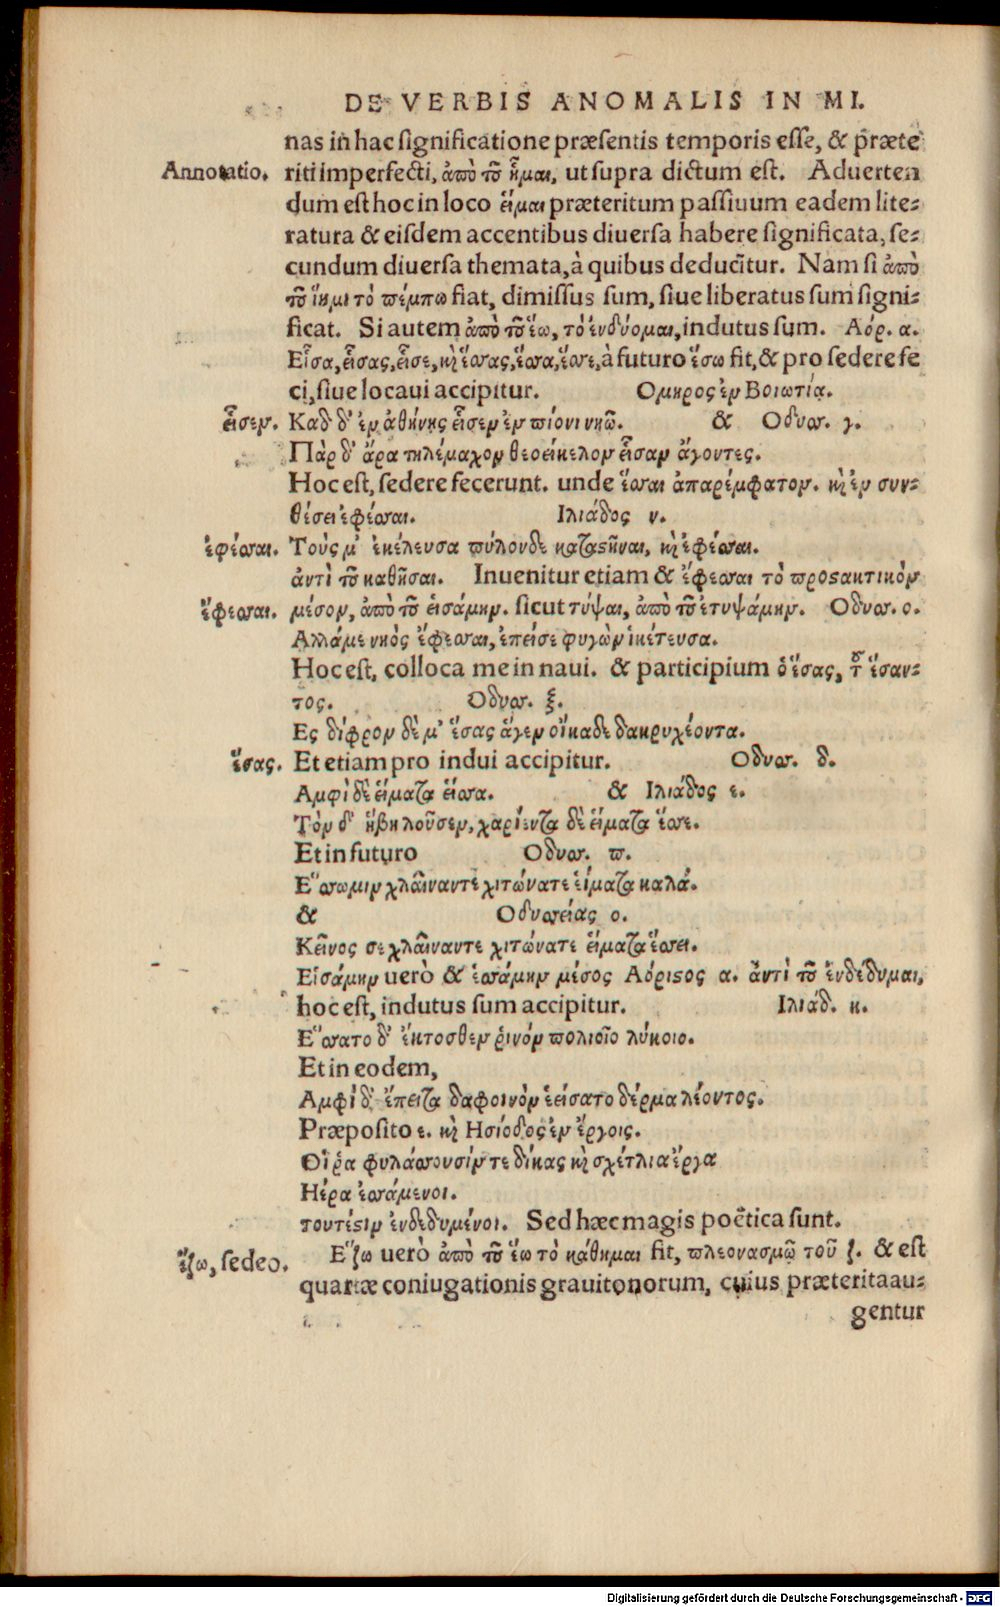 DE VERBIS ANOMALIS IN MI.
nas in hac significatione præsentis temporis esse, & præte
Annotatio.
riti imperfecti, ἀπὸ τοῦ ἧμαι, ut supra dictum est. Aduerten
dum est hoc in loco εἷμαι præteritum passiuum eadem lite-
ratura & eisdem accentibus diuersa habere significata, se-
cundum diuersa themata, à quibus deducitur. Nam si ἀπὸ
τοῦ ἵημι τὸ πέμπω fiat, dimissus sum, siue liberatus sum signi-
ficat. Si autem ἀπὸ τοῦ ἕω, τὸ ἐνδύομαι, indutus sum. Αόρ. α.
Εἷσα, εἷσας, εἷσε, καὶ ἕσσας, ἕσσα, ἕσσε, à futuro ἕσω fit, & pro sedere fe
ci, siue locaui accipitur. Ομηρος ἐν Βοιωτίᾳ.
εἷσεν.
Καδ δ' ἐν ἀθήνης εἷσεν ἐν πίονι νηῶ. & Οδυσσ. γ.
Πὰρ δ' ἄρα τηλέμαχον θεοείκελον εἷσαν ἄγοντες.
Hoc est, sedere fecerunt. unde ἕσσαι ἀπαρέμφατον. καὶ ἐν συν-
θέσει ἐφέσσαι. Ιλιάδος ν.
ἐφέσσαι.
Τοὺς μ' ἐκέλευσα πύλονδε καταστῆναι, καὶ ἐφέσσαι.
ἀντὶ τοῦ καθῆσαι. Inuenitur etiam & ἔφεσσαι τὸ προστακτικὸν
ἔφεσσαι.
μέσον, ἀπὸ τοῦ εἱσάμην. sicut τύψαι, ἀπὸ τοῦ ἐτυψάμην. Οδυσσ. ο.
Αλλάμε νηὸς ἔφεσσαι, ἐπείσε φυγὼν ἱκέτευσα.
Hoc est, colloca me in naui. & participium ὁ ἕσας, τοῦ ἕσαν-
τος. Οδυσσ. ξ.
Ες δίφρον δὲ μ' ἕσας ἄγεν οἴκαδε δακρυχέοντα.
ἕσας.
Et etiam pro indui accipitur. Οδυσσ. δ.
Αμφὶ δὲ εἵματα εἵσσα. & Ιλιάδος ε.
Τὸν δ' ἥβη λοῦσεν, χαρίεντα δὲ εἵματα ἕσσε.
Et in futuro Οδυσσ. π.
Εσσωμιν χλαῖναντε χιτώνατε εἵματα καλά.
& Οδυσσείας ο.
Κεῖνος σε χλαῖναντε χιτώνατε εἵματα ἕσσει.
Εἱσάμην uerò & ἑσσάμην μέσος Αόριστος α. ἀντὶ τοῦ ἐνδέδυμαι,
hoc est, indutus sum accipitur. Ιλιάδ. κ.
Εσσατο δ' ἔκτοσθεν ῥινόν πολιοῖο λύκοιο.
Et in eodem,
Αμφὶ δ' ἔπειτα δαφοινὸν ἑείσατο δέρμα λέοντος.
Præposito ε. καὶ Ησίοδος ἐν ἔργοις.
Οἵ ῥα φυλάσσουσίν τε δίκας καὶ σχέτλια ἔργα
Ηέρα ἑσσάμενοι.
τουτέστιν ἐνδεδυμένοι. Sed hæc magis poëtica sunt.
ἕζω, sedeo.
Εζω uerò ἀπὸ τοῦ ἕω τὸ κάθημαι fit, πλεονασμῷ τοῦ ζ. & est
quartæ coniugationis grauitonorum, cuius præterita au-
gentur
Digitalisierung gefördert durch die Deutsche Forschungsgemeinschaft - DFG